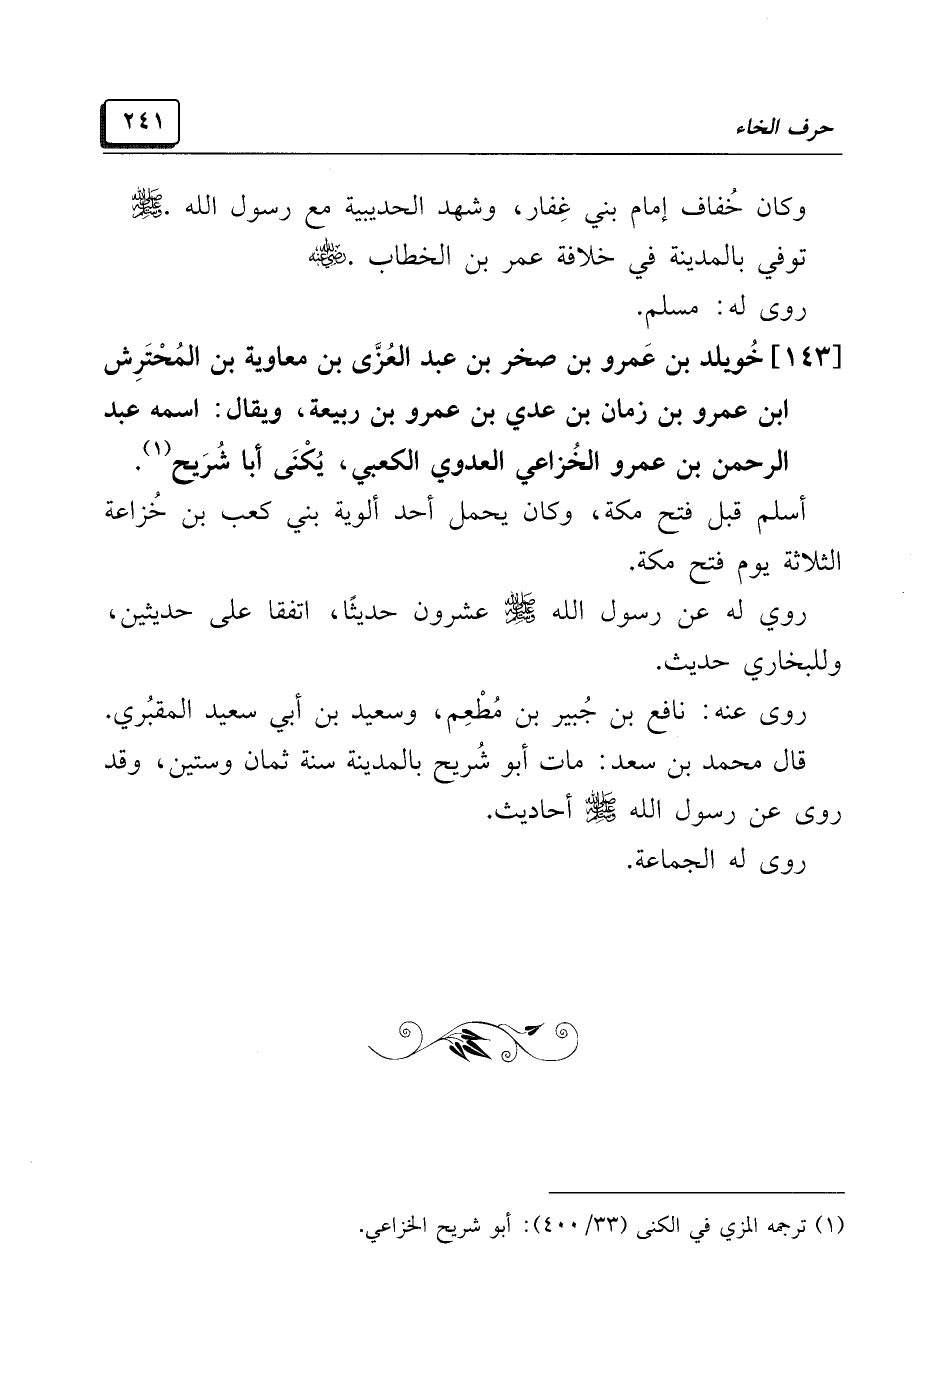 حرف الخاء
٢٤١
وكان خُفاف إمام بني غِفار، وشهد الحديبية مع رسول الله ﷺ.
توفي بالمدينة في خلافة عمر بن الخطاب رضي الله عنه.
روى له: مسلم.
[١٤٣] خُويلد بن عَمرو بن صخر بن عبد العُزَّى بن معاوية بن المُحْتَرِش
ابن عمرو بن زمان بن عدي بن عمرو بن ربيعة، ويقال: اسمه عبد
الرحمن بن عمرو الخُزاعي العدوي الكعبي، يُكْنَى أبا شُرَيح(١).
أسلم قبل فتح مكة، وكان يحمل أحد ألوية بني كعب بن خُزاعة
الثلاثة يوم فتح مكة.
روي له عن رسول الله ﷺ عشرون حديثًا، اتفقا على حديثين،
وللبخاري حديث.
روى عنه: نافع بن جُبير بن مُطْعِم، وسعيد بن أبي سعيد المقبُري.
قال محمد بن سعد: مات أبو شُريح بالمدينة سنة ثمان وستين، وقد
روى عن رسول الله ﷺ أحاديث.
روى له الجماعة.
(١) ترجمه المزي في الكنى (٣٣/ ٤٠٠): أبو شريح الخزاعي.